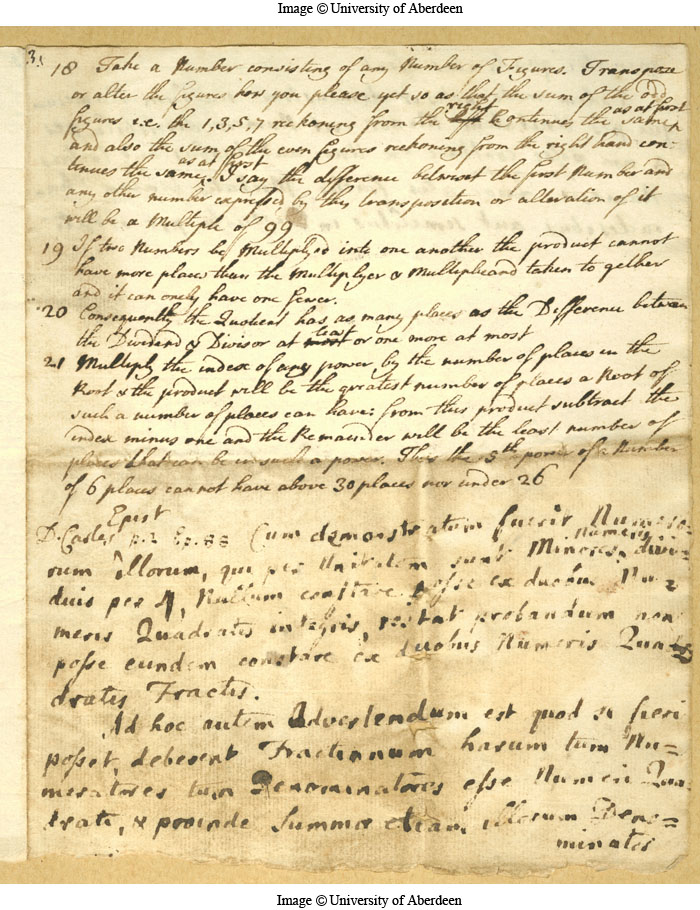 Image © University of Aberdeen
3.
18 Take a Number consisting of any Number of Figures. Transpose
or alter the figures how you please yet so as that the sum of the odd
figures i.e. the 1, 3, 5, 7 reckoning from the right Continues the same as at first
and also the sum of the even figures reckoning from the right hand con-
tinues the same as at first. I say the difference betwixt the first Number and
any other number expressed by this transposition or alteration of it
will be a Multiple of 99
19 If two Numbers be Multiplyed into one another the product cannot
have more places than the Multiplyer & Multiplicand taken to gether
and it can onely have one fewer.
20 Consequently the Quotient has as many places as the Difference between
the Dividend & Divisor at least or one more at most
21 Multiply the index of any power by the number of places in the
Root & the product will be the greatest number of places a Root of
such a number of places can have: from this product subtract the
index minus one and the Remainder will be the least number of
places that can be in such a power. Thus the 5th power of a Number
of 6 places cannot have above 30 places nor under 26
D. Cartes Epist p. 2 Ep. 88 Cum demonstratum fuerit Numero-
rum illorum, qui per Unitatem sunt Minores Numeris divi-
duis per 4, Nullum constare posse ex duobus Nu-
meris Quadratis integris, restat probandum non
posse eundem constare ex duobus Numeris Qua-
dratis Fractis.
Ad hoc autem Advertendum est quod si fieri
posset, deberent Fractionum harum tum Nu=
meratores tum Denominatores esse Numeri Qua-
drati, & proinde Summae etiam illorum Deno=
minator
Image © University of Aberdeen